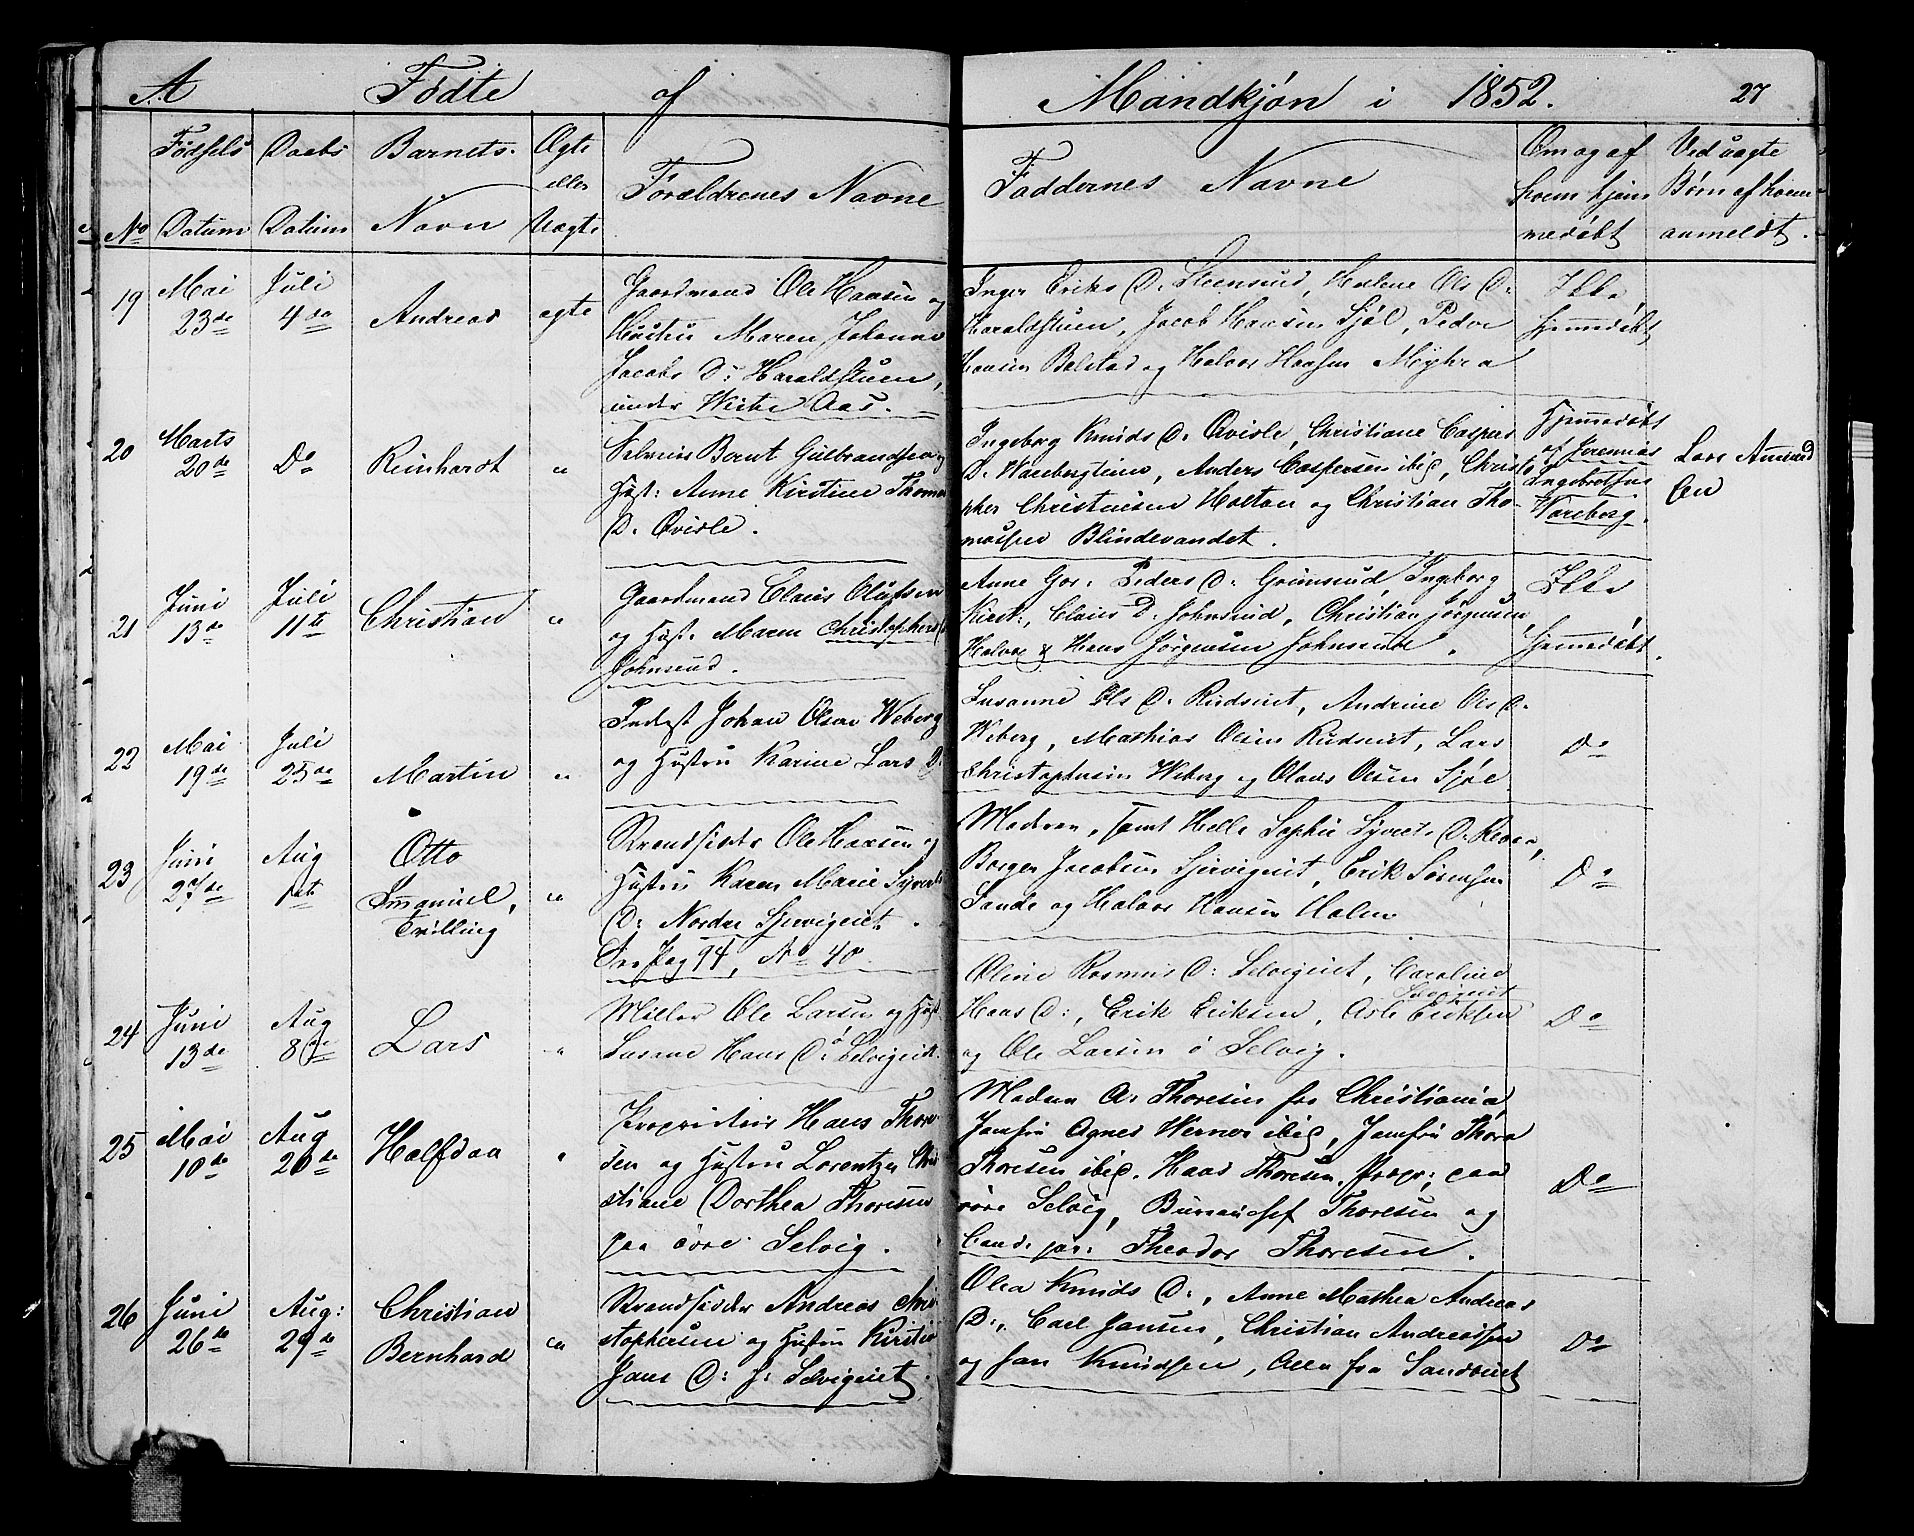 A Fødte af Mandkjøn i 1852. 27
No
Fødsels Datum
Daabs Datum
Barnets Navn
Ægte eller Uægte
Forældrenes Navne
Faddernes Navne
Om og af hvem hjemmedøbt
Ved uægte Børn af hvem anmeldt.
19
Mai 23de
Juli 4de
Andreas
ægte
Gaardmand Ole Hansen og
Hustru Maren Johanne
Jacobs D: Haraldstuen,
under Aas.
Inger Eriks D. Steensrud, Helene Ols D:
Haraldstuen, Jacob Hansen Sjøl, Peder
Hansen Bolstad og Halvor Hansen Myhra
Ikke
hjemmedøbt,
20
Marts 20de
Do
Reinhardt
"
Bernt Gulbrandsen og
Hust: Anne Kirstine Thomas
D. Qvisle.
Ingeborg Knuds D. Qvisle, Christiane Caspers
D. Anders Caspersen ibid, Christo
pher Christensen Holtan og Christian Tho-
massen Blindevandet.
Hjemmedøbt
af Jeremias
Ingebrotsen
Wareberg.
Lars Amund
sen
21
Juni 13de
Juli 11te
Christian
"
Gaardmand Claus Olufsen
og Hust. Maren Christophers D
Johnsrud.
Anne Gor: Peders D: Grimsrud, Ingeborg
Kirst:, Claus D. Johnsrud, Christian Jørgensen,
Halvor & Hans Jørgensen Johnsrud.
Ikke
hjemmedøbt.
22
Mai 19de
Juli 25de
Martin
"
Inderst Johan Olsen Weberg
og Hustru Karine Lars D.
Susanne Ols D. Rudseiet, Andrine Ols D.
Weberg, Mathias Olsen Rudseiet, Lars
Christophersen Weberg og Olaus Olsen Sjøl
Do
23
Juni 27de
Aug 1ste
Otto
Imanuel,
Tvilling
"
Strandsidder Ole Hansen og
Hustru Karen Marie Syverts
D: Nordre
See Pag 94, No 40.
Moderen, samt Helle Sophie Syverts D.
Borger Jacobsen Erik Sørensen
Sande og Halvor Hansen Holen
Do
24
Juni 13de
Aug 8de
Lars
"
Møller Ole Larsen og Hust
Susane Hans D: Selvigeiet.
Oline Rasmus D: Selvigeiet, Caroline
Selvigeiet
Hans D:, Erik Eriksen, Eriksen
og Ole Larsen Selvig.
Do
25
Mai 10de
Aug 20de
Halfdan
"
Proprietair Hans Thore-
sen og Hustru Lorentze Chri
stiane Dorthea Thoresen
paa øvre Selvig.
Madam A. Thoresen fra Christiania,
Jomfru Agnes Werner ibid, Jomfru Thora
Thoresen ibid. Hans Thoresen, Propr: paa
øvre Selvig, Bureauchef Thoresen og
Cand. jur: Theodor Thoresen.
Do
26
Juni 26de
Aug: 29de
Christian
Bernhard
"
Strandsidder Andreas Chri-
stophersen og Hustru Kirstine
Jans D: Selvigeiet.
Olea Knuds D:, Anne Mathea Andreas
D:, Carl Jansen, Christian Andreassen
og Jan Knudsen, Alle fra Sandviet
Do